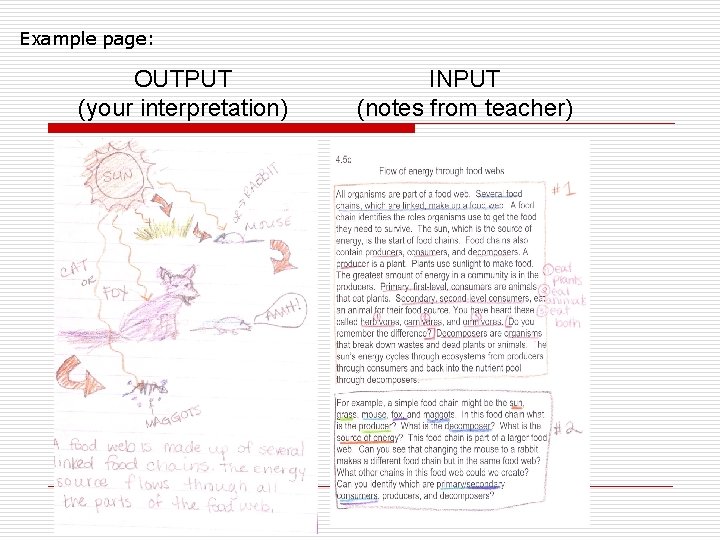 Example page:
OUTPUT
(your interpretation)
INPUT
(notes from teacher)
SUN
or → RABBIT
MOUSE
CAT
OR
FOX
AHH!
MAGGOTS
A food web is made up of several
linked food chains. The energy
source flows through all
the parts of the food web.
4.5c
Flow of energy through food webs
All organisms are part of a food web. Several food
chains, which are linked, make up a food web. A food
chain identifies the roles organisms use to get the food
they need to survive. The sun, which is the source of
energy, is the start of food chains. Food chains also
contain producers, consumers, and decomposers. A
producer is a plant. Plants use sunlight to make food.
The greatest amount of energy in a community is in the
producers. Primary, first-level, consumers are animals
that eat plants. Secondary, second-level consumers, eat
an animal for their food source. You have heard these
called herbivores, carnivores, and omnivores. Do you
remember the difference? Decomposers are organisms
that break down wastes and dead plants or animals. The
sun's energy cycles through ecosystems from producers
through consumers and back into the nutrient pool
through decomposers.
#1
① eat
plants
② eat
animals
③ eat
both
For example, a simple food chain might be the sun,
grass, mouse, fox, and maggots. In this food chain what
is the producer? What is the decomposer? What is the
source of energy? This food chain is part of a larger food
web. Can you see that changing the mouse to a rabbit
makes a different food chain but in the same food web?
What other chains in this food web could we create?
Can you identify which are primary/secondary
consumers, producers, and decomposers?
#2